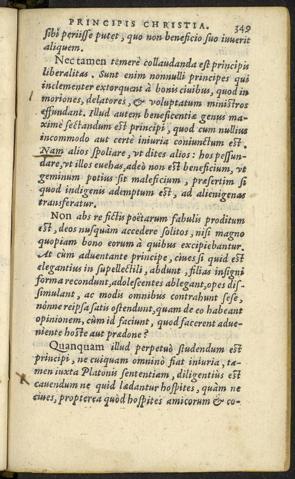 PRINCIPIS CHRISTIA. 349
sibi periisse putet, quo non beneficio suo iuverit
aliquem.
Nec tamen temerè collaudanda est principis
liberalitas. Sunt enim nonnulli principes qui
inclementer extorquent à bonis civibus, quod in
moriones, delatores, & voluptatum ministros
effundant. Illud autem beneficentiæ genus ma-
ximè sectandum est principi, quod cum nullius
incommodo aut certè iniuria coniunctum est.
Nam alios spoliare, vt dites alios: hos pessun-
dare, vt illos euehas, adeò non est beneficium, vt
geminum potius sit maleficium, præsertim si
quod indigenis ademptum est, ad alienigenas
transferatur.
Non abs re fictis poëtarum fabulis proditum
est, deos nusquàm accedere solitos, nisi magno
quopiam bono eorum à quibus excipiebantur.
At cùm aduentante principe, ciues si quid est
elegantius in supellectili, abdunt, filias insigni
forma recondunt, adolescentes ablegant, opes dis-
simulant, ac modis omnibus contrahunt sese,
nónne reipsa satis ostendunt, quam de eo habeant
opinionem, cùm id faciunt, quod facerent adue-
niente hoste aut prædone?
Quanquam illud perpetuò studendum est
principi, ne cuiquam omninò fiat iniuria, ta-
men iuxta Platonis sententiam, diligentiùs est
cauendum ne quid lædantur hospites, quàm ne
ciues, propterea quòd hospites amicorum & co-